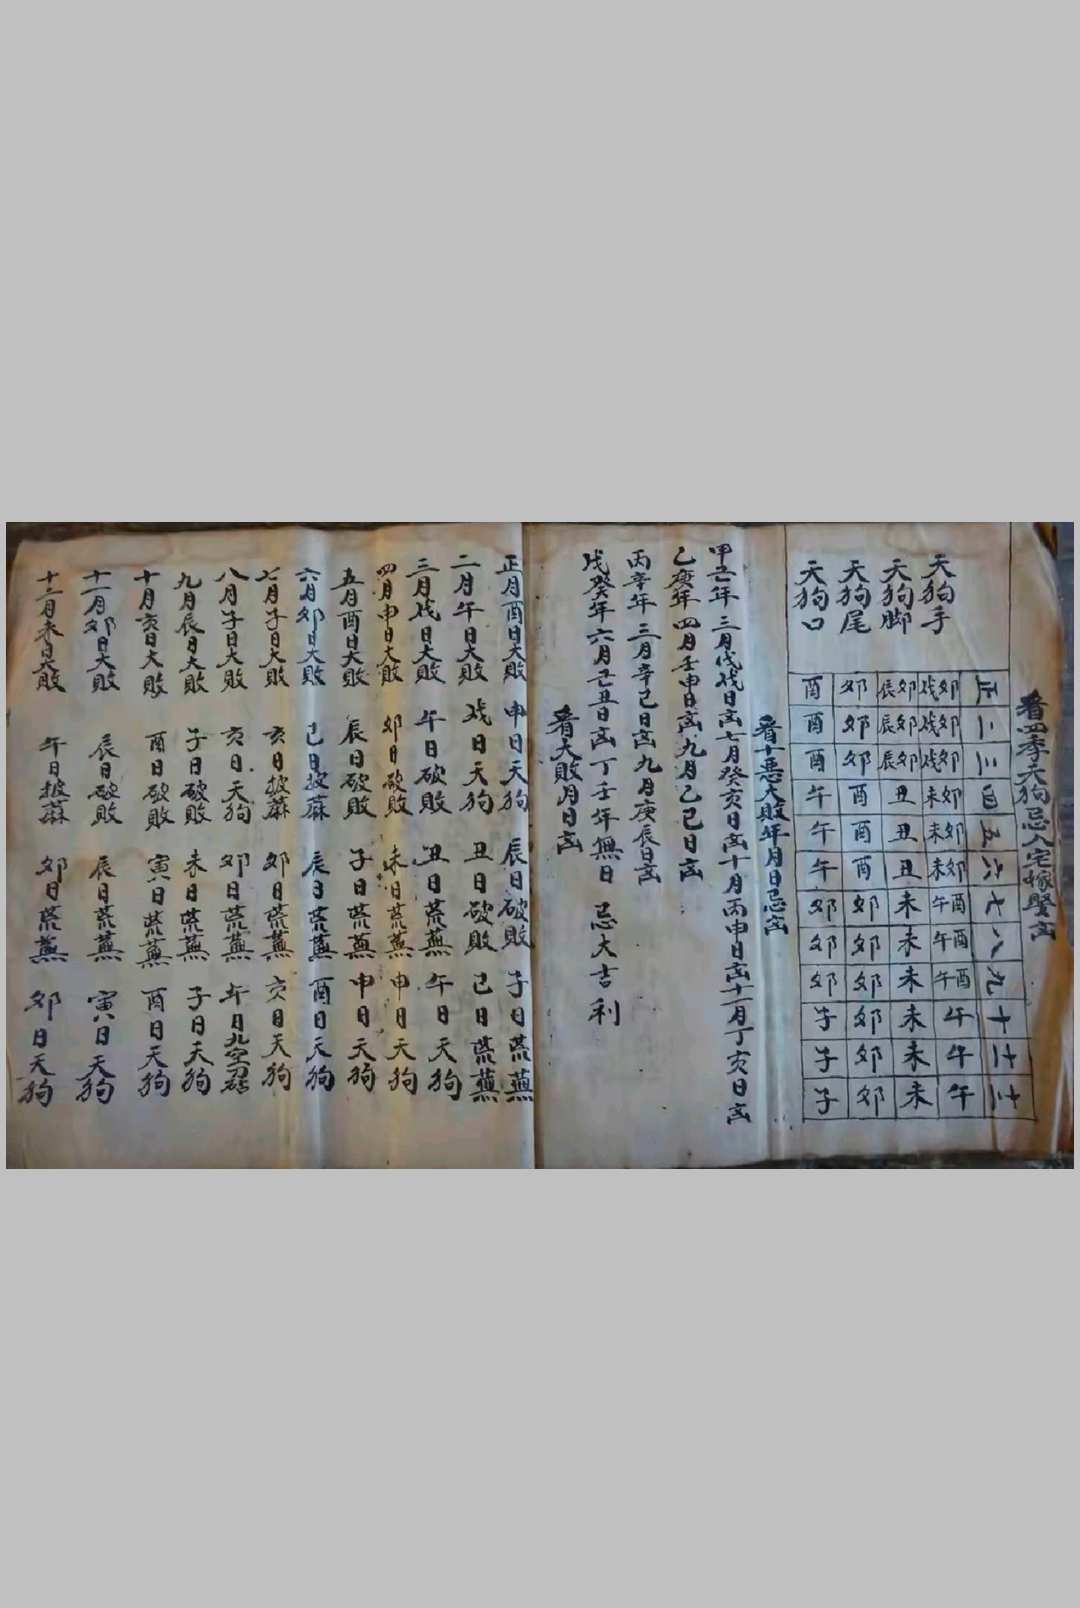 看四季天狗忌入宅嫁娶㐫
正 二 三 四 五 六 七 八 九 十 十一 十二
天狗手 戌卯 戌卯 戌卯 未卯 未卯 未卯 午酉 午酉 午酉 午 午 午
天狗脚 辰卯 辰卯 辰卯 丑 丑 丑 未 未 未 未 未 未
天狗尾 卯 卯 卯 酉 酉 酉 卯 卯 卯 卯 卯 卯
天狗口 酉 酉 酉 午 午 午 卯 卯 卯 子 子 子
看十惡大敗年月日忌㐫
甲己年 三月戊戌日㐫七月癸亥日㐫十月丙申日㐫十一月丁亥日㐫
乙庚年 四月壬申日㐫九月乙巳日㐫
丙辛年 三月辛巳日㐫九月庚辰日㐫
戊癸年 六月己丑日㐫丁壬年無日 忌大吉利
看大敗月日㐫
正月酉日大敗 申日天狗 辰日破敗 子日荒蕪
二月午日大敗 戌日天狗 丑日破敗 巳日荒蕪
三月戌日大敗 午日破敗 丑日荒蕪 午日天狗
四月申日大敗 卯日破敗 未日荒蕪 申日天狗
五月酉日大敗 辰日破敗 子日荒蕪 申日天狗
六月卯日大敗 巳日披蔴 辰日荒蕪 酉日天狗
七月子日大敗 亥日披蔴 卯日荒蕪 亥日天狗
八月子日大敗 亥日天狗 卯日荒蕪 午日九空
九月辰日大敗 子日破敗 未日荒蕪 子日天狗
十月亥日大敗 酉日破敗 寅日荒蕪 酉日天狗
十一月卯日大敗 辰日破敗 辰日荒蕪 寅日天狗
十二月未日大敗 午日披蔴 卯日荒蕪 卯日天狗